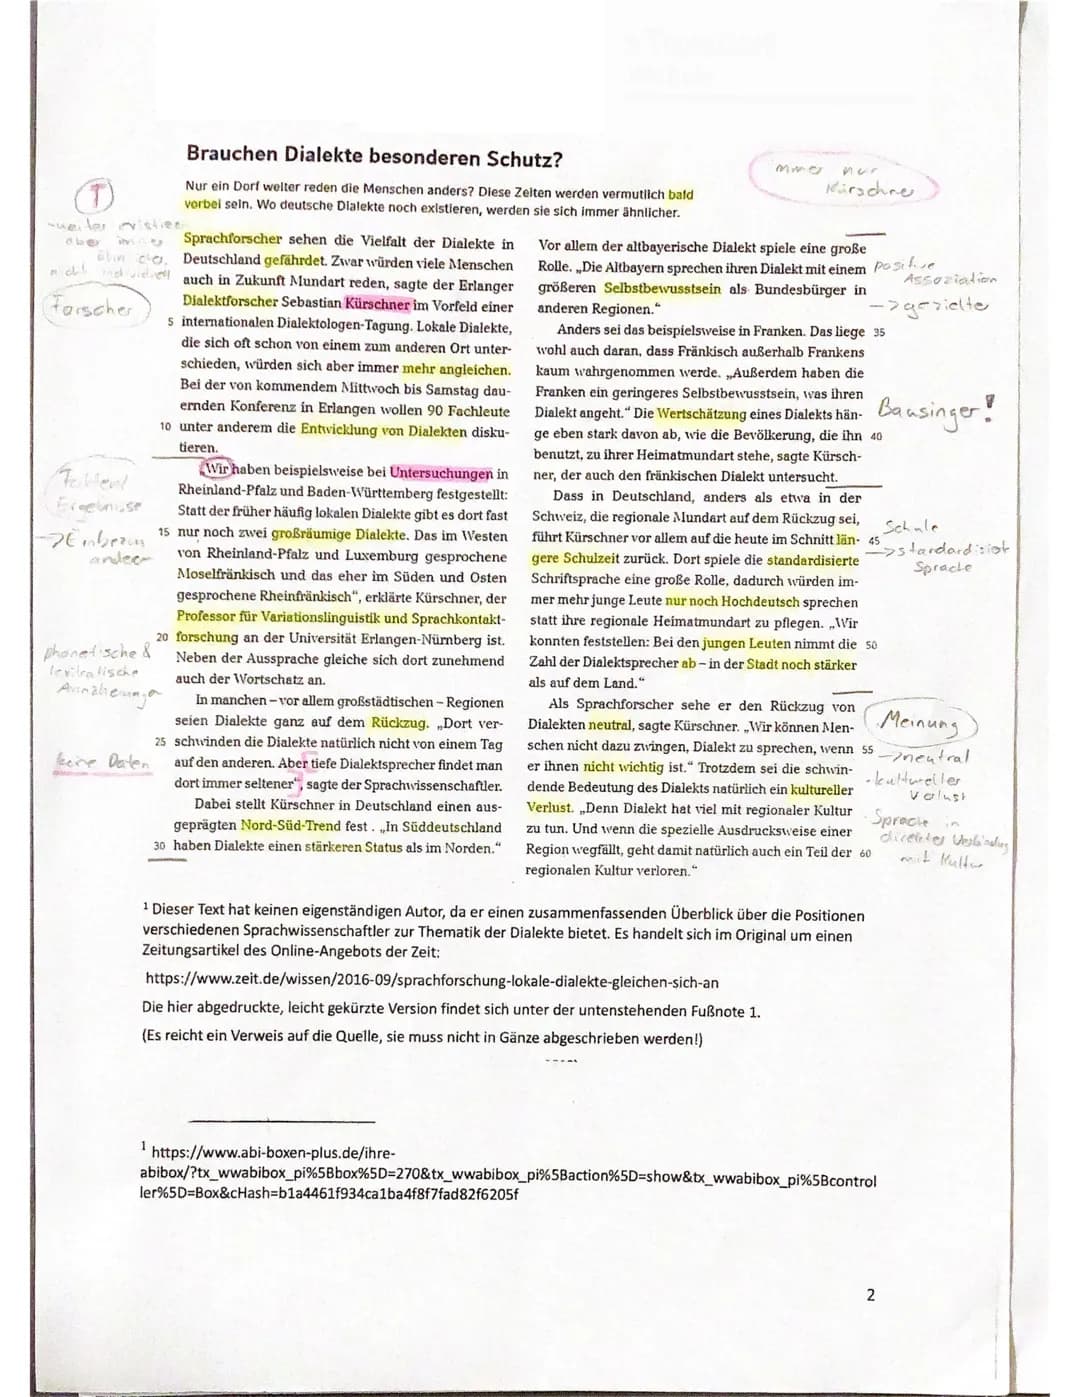 Brauchen Dialekte besonderen Schutz?
Nur ein Dorf weiter reden die Menschen anders? Diese Zeiten werden vermutlich bald
vorbei sein. Wo deutsche Dialekte noch existieren, werden sie sich immer ähnlicher.
immer nur
Kürschner
T
aber immer
Forscher
Sprachforscher sehen die Vielfalt der Dialekte in
Deutschland gefährdet. Zwar würden viele Menschen
auch in Zukunft Mundart reden, sagte der Erlanger
Dialektforscher Sebastian Kürschner im Vorfeld einer
5 internationalen Dialektologen-Tagung. Lokale Dialekte,
die sich oft schon von einem zum anderen Ort unter-
schieden, würden sich aber immer mehr angleichen.
Bei der von kommendem Mittwoch bis Samstag dau-
ernden Konferenz in Erlangen wollen 90 Fachleute
10 unter anderem die Entwicklung von Dialekten disku-
tieren.
„Wir haben beispielsweise bei Untersuchungen in
Rheinland-Pfalz und Baden-Württemberg festgestellt:
Statt der früher häufig lokalen Dialekte gibt es dort fast
15 nur noch zwei großräumige Dialekte. Das im Westen
von Rheinland-Pfalz und Luxemburg gesprochene
Moselfränkisch und das eher im Süden und Osten
gesprochene Rheinfränkisch“, erklärte Kürschner, der
Professor für Variationslinguistik und Sprachkontakt-
20 forschung an der Universität Erlangen-Nürnberg ist.
Neben der Aussprache gleiche sich dort zunehmend
auch der Wortschatz an.
In manchen – vor allem großstädtischen – Regionen
seien Dialekte ganz auf dem Rückzug. „Dort ver-
25 schwinden die Dialekte natürlich nicht von einem Tag
auf den anderen. Aber tiefe Dialektsprecher findet man
dort immer seltener“, sagte der Sprachwissenschaftler.
Dabei stellt Kürschner in Deutschland einen aus-
geprägten Nord-Süd-Trend fest. „In Süddeutschland
30 haben Dialekte einen stärkeren Status als im Norden.“
Ergebnisse
phonetische &
Annäherung
keine Daten
Vor allem der altbayerische Dialekt spiele eine große
Rolle. „Die Altbayern sprechen ihren Dialekt mit einem
größeren Selbstbewusstsein als Bundesbürger in
anderen Regionen.“
Anders sei das beispielsweise in Franken. Das liege 35
wohl auch daran, dass Fränkisch außerhalb Frankens
kaum wahrgenommen werde. „Außerdem haben die
Franken ein geringeres Selbstbewusstsein, was ihren
Dialekt angeht.“ Die Wertschätzung eines Dialekts hän-
ge eben stark davon ab, wie die Bevölkerung, die ihn 40
benutzt, zu ihrer Heimatmundart stehe, sagte Kürsch-
ner, der auch den fränkischen Dialekt untersucht.
Dass in Deutschland, anders als etwa in der
Schweiz, die regionale Mundart auf dem Rückzug sei,
führt Kürschner vor allem auf die heute im Schnitt län- 45
gere Schulzeit zurück. Dort spiele die standardisierte
Schriftsprache eine große Rolle, dadurch würden im-
mer mehr junge Leute nur noch Hochdeutsch sprechen
statt ihre regionale Heimatmundart zu pflegen. „Wir
konnten feststellen: Bei den jungen Leuten nimmt die 50
Zahl der Dialektsprecher ab – in der Stadt noch stärker
als auf dem Land.“
Als Sprachforscher sehe er den Rückzug von
Dialekten neutral, sagte Kürschner. „Wir können Men-
schen nicht dazu zwingen, Dialekt zu sprechen, wenn 55
er ihnen nicht wichtig ist.“ Trotzdem sei die schwin-
dende Bedeutung des Dialekts natürlich ein kultureller
Verlust. „Denn Dialekt hat viel mit regionaler Kultur
zu tun. Und wenn die spezielle Ausdrucksweise einer
Region wegfällt, geht damit natürlich auch ein Teil der 60
regionalen Kultur verloren.“
positive
Assoziation
-> gezielter
Bausinger!
Schule
-> standardisiert
Sprache
Meinung
-> neutral
- kultureller
Verlust
Sprache in
direkter Verbindung
mit Kultur
1 Dieser Text hat keinen eigenständigen Autor, da er einen zusammenfassenden Überblick über die Positionen
verschiedenen Sprachwissenschaftler zur Thematik der Dialekte bietet. Es handelt sich im Original um einen
Zeitungsartikel des Online-Angebots der Zeit:
https://www.zeit.de/wissen/2016-09/sprachforschung-lokale-dialekte-gleichen-sich-an
Die hier abgedruckte, leicht gekürzte Version findet sich unter der untenstehenden Fußnote 1.
(Es reicht ein Verweis auf die Quelle, sie muss nicht in Gänze abgeschrieben werden!)
-----
1 https://www.abi-boxen-plus.de/ihre-
abibox/?tx_wwabibox_pi%5Bbox%5D=270&tx_wwabibox_pi%5Baction%5D=show&tx_wwabibox_pi%5Bcontrol
ler%5D=Box&cHash=b1a4461f934ca1ba4f8f7fad82f6205f
2